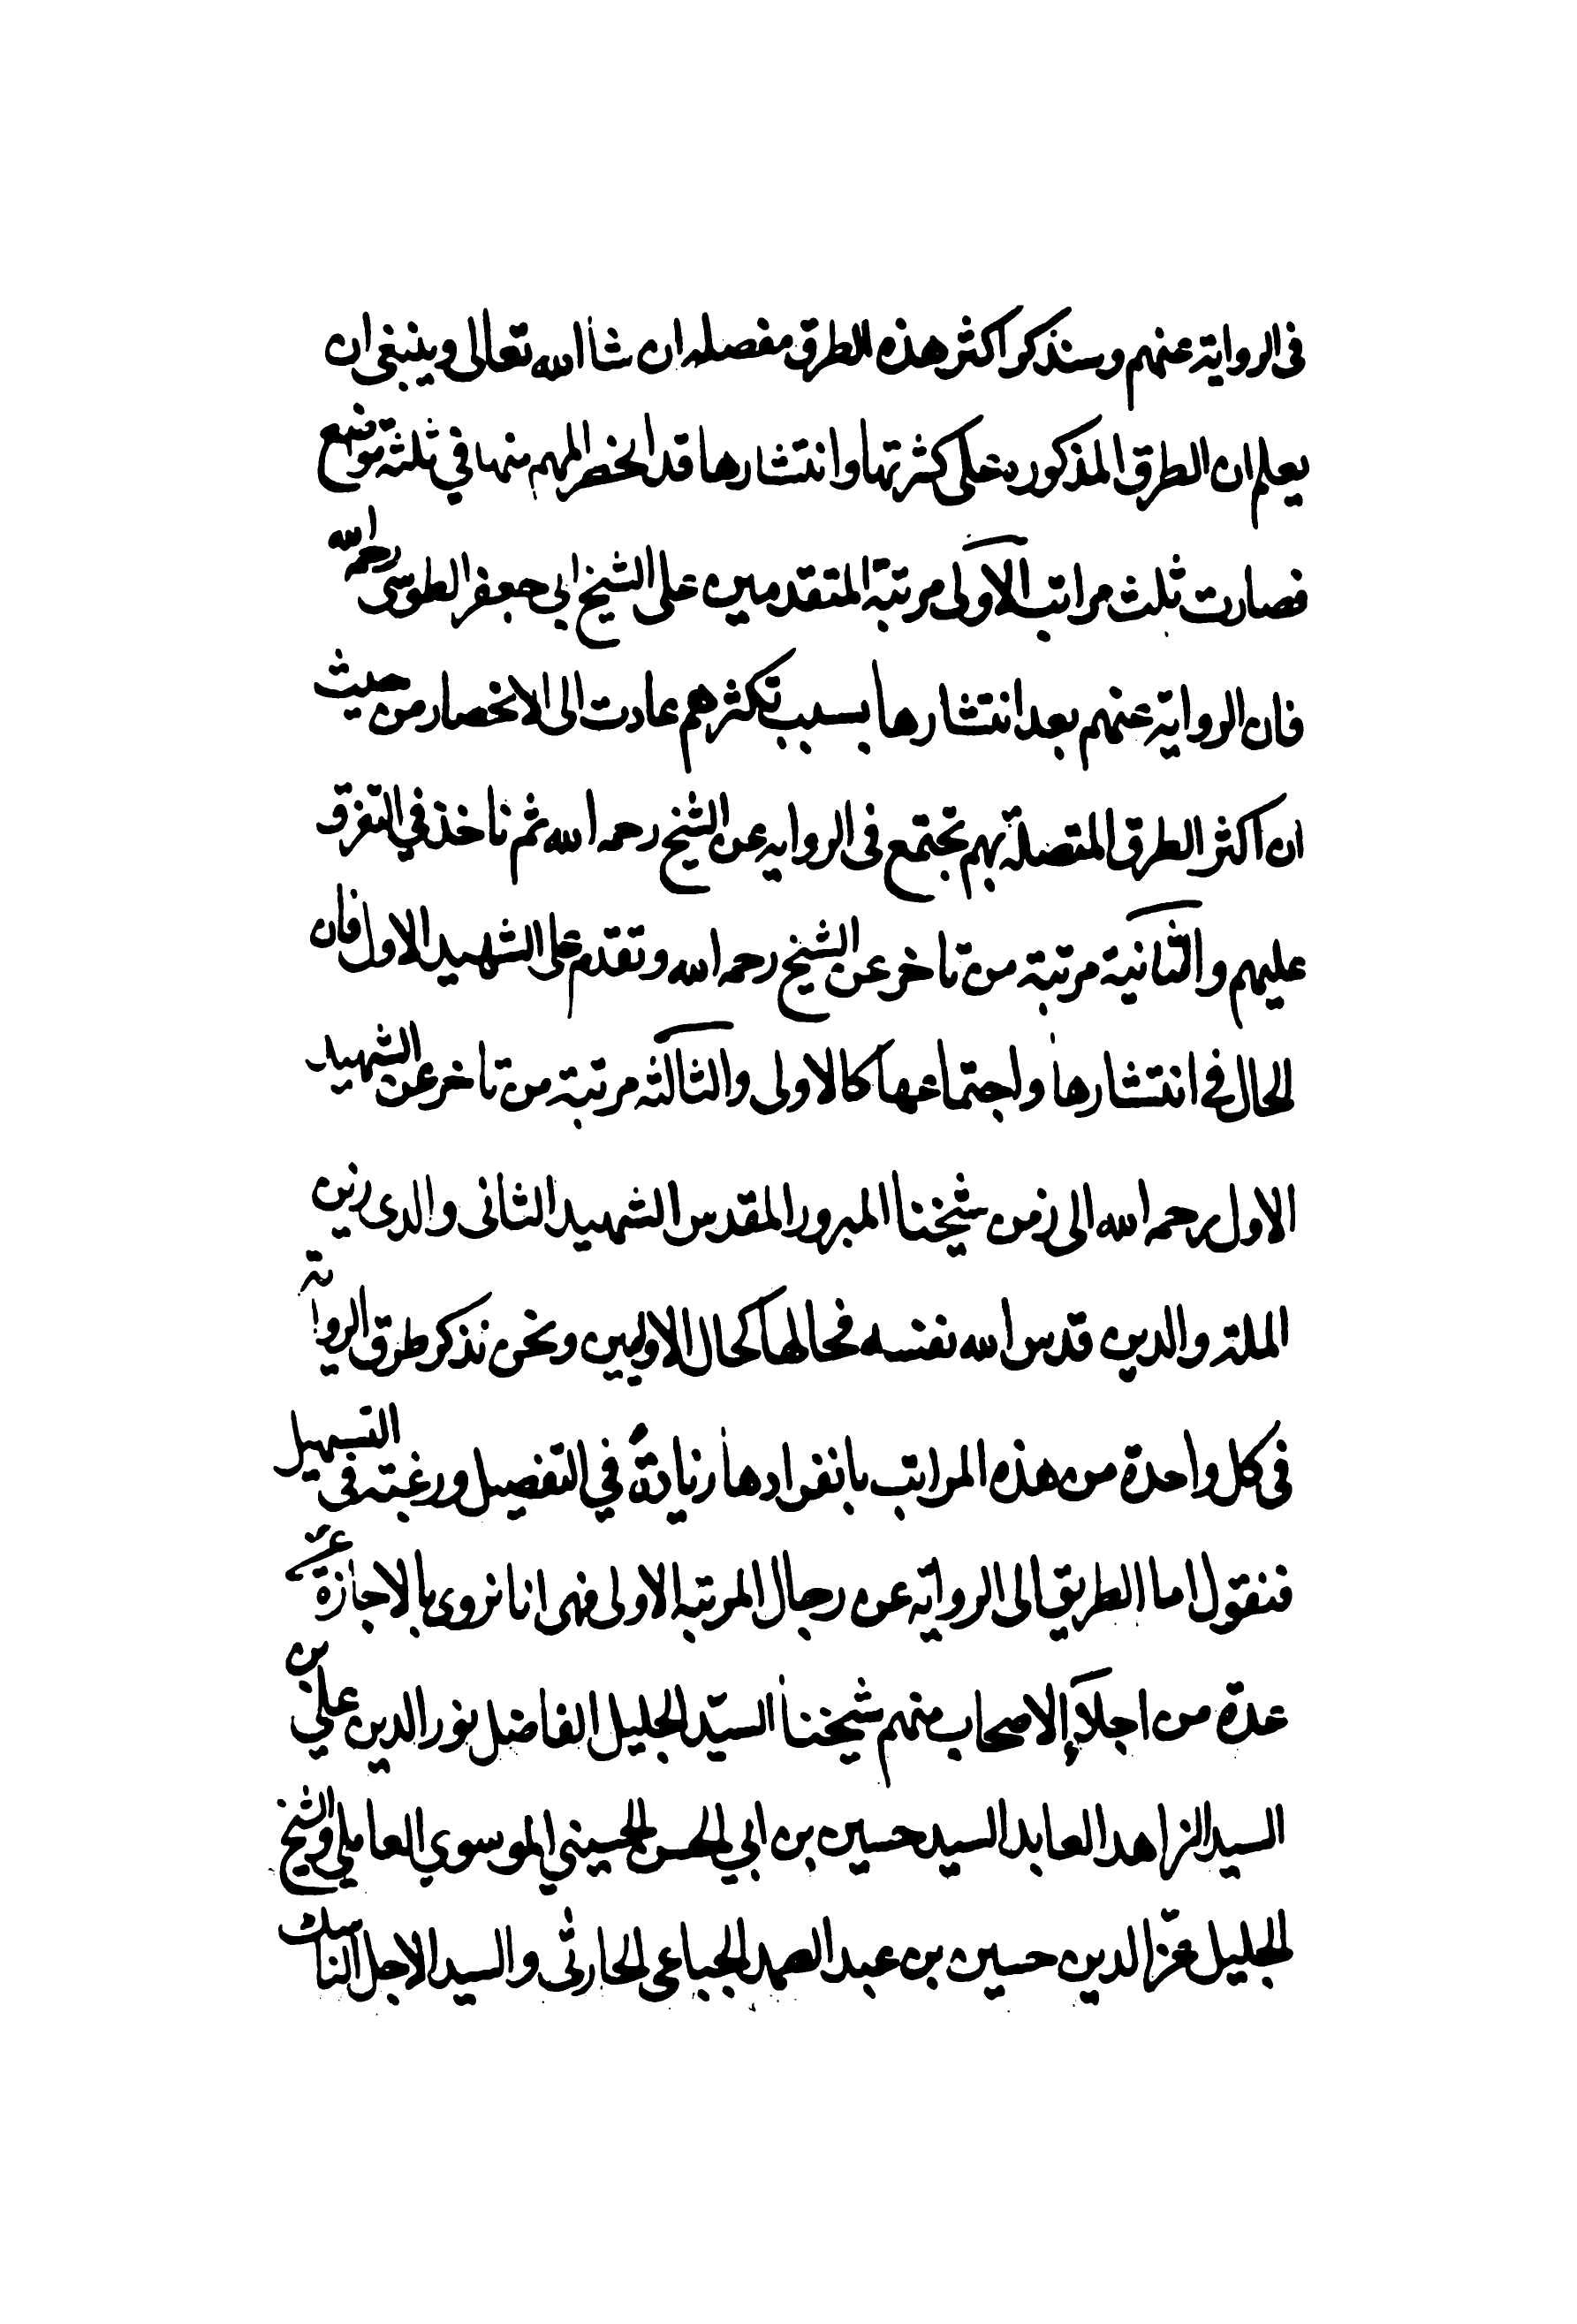 في الرواية عنهم وسنذكر اكثر هذه الطرق مفصله ان شاالله تعالى وينبغي ان
يعلم ان الطرق المذكوره على كثرتها وانتشارها قد انحصر المهم منها في ثلثة مواضع
فصارت ثلث مراتب الاولى مرتبة المتقدمين على الشيخ ابي جعفر الطوسي رحمه الله
فان الرواية عنهم بعد انتشارها بسبب تكثرهم عادت الى الانحصار من حيث
ان اكثر الطرق المتصلة بهم تجتمع في الروايه عن الشيخ رحمه الله ثم ناخذ في التفرق
عليهم والثانية مرتبة من تاخر عن الشيخ رحمه الله وتقدم على الشهيد الاول فان
الحال في انتشارها واجتماعها كالاولى والثالثه مرتبة من تاخر عن الشهيد
الاول رحمه الله الى زمن شيخنا المبرور المقدس الشهيد الثاني والدي زين
الملة والدين قدس الله نفسه فحالها كحال الاوليين ونحن نذكر طرق الرواية
في كل واحدة من هذه المراتب بانفرادها زيادةً في التفصيل ورغبته في التسهيل
فنقول اما الطريق الى الرواية عن رجال المرتبة الاولى فهى انا نروي بالاجازة عن
عدة من اجلاء الاصحاب منهم شيخنا السيّد الجليل الفاضل نور الدين علي بن
السيد الزاهد العابد السيد حسين بن ابي الحسن الحسيني الموسوي العاملي والشيخ
الجليل عزّ الدين حسين بن عبد الصمد الجباعي الحارثي والسيد الاجل الناسك